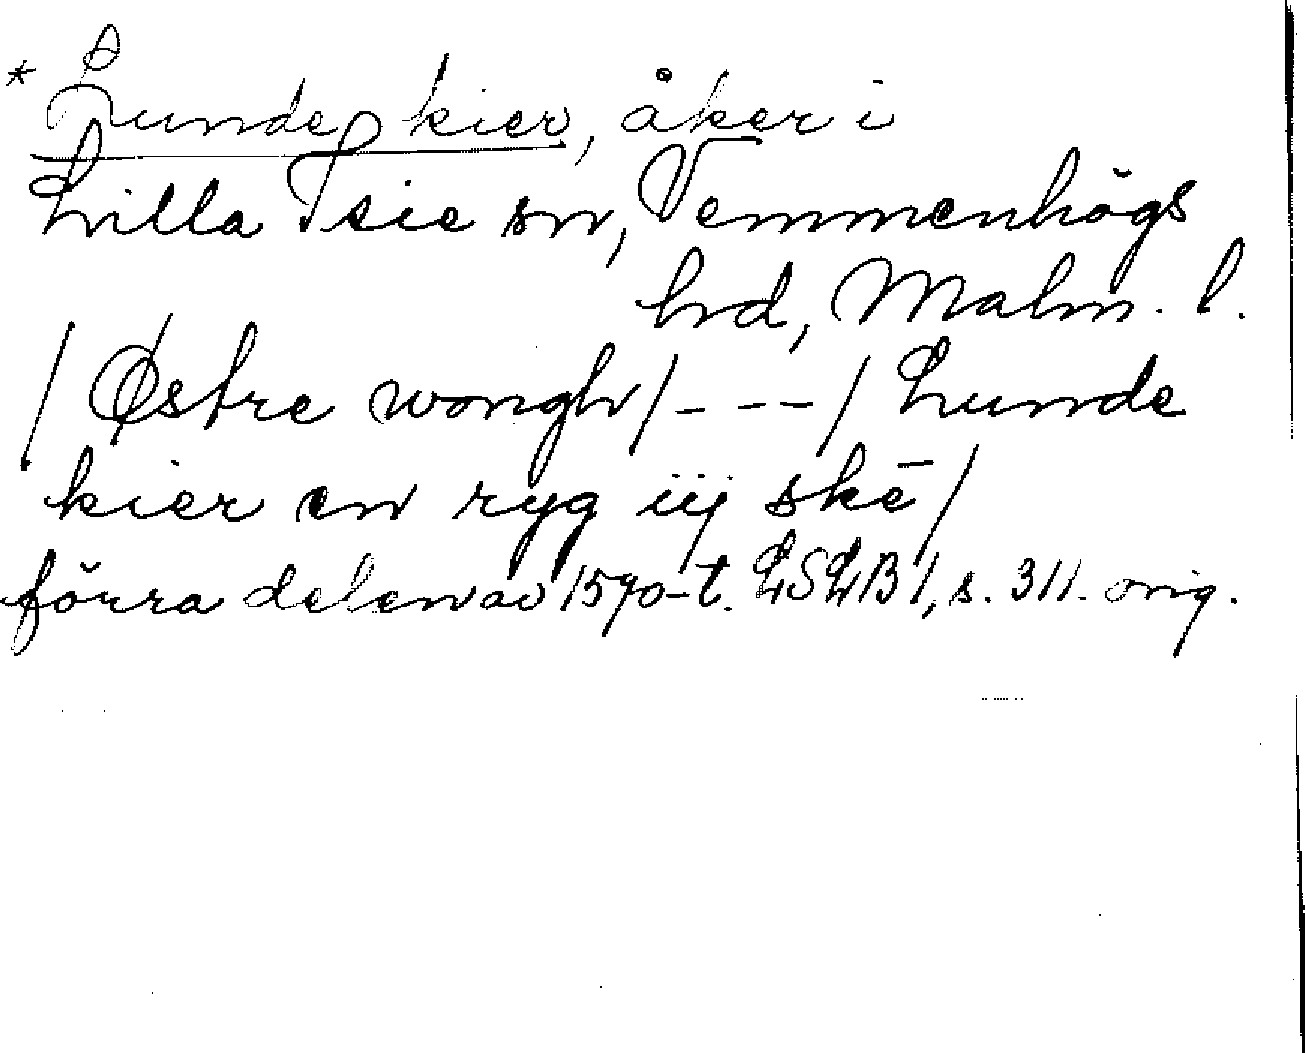 * Lunde kier, åker i
Lilla Isie sn, Vemmenhögs
hd, Malm. l.
/ Østre wongh / - - - / Lunde
kier en ryg iij skē /
förra delen av 1590-t. LSLB 1, s. 311. orig.